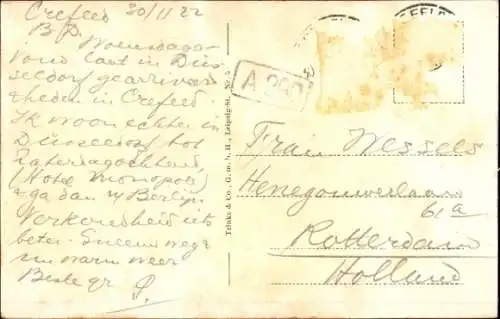 Crefeld 30/11 22
B.P.
Woensdaga-
vond laat in Düs
seldorf gearriveerd
heden in Crefeld.
Ik woon echter in
Düsseldorf tot
Zaterdagochtend
(Hotel Monopole)
ga dan n/ Berlijn.
Verkoudheid iets
beter. Sneeuw regen
warm weer
Beste gr
Trinks & Co., G. m. b. H., Leipzig
CREFELD
A
Frau Wessels
Henegouwerlaan
61a
Rotterdam
Holland